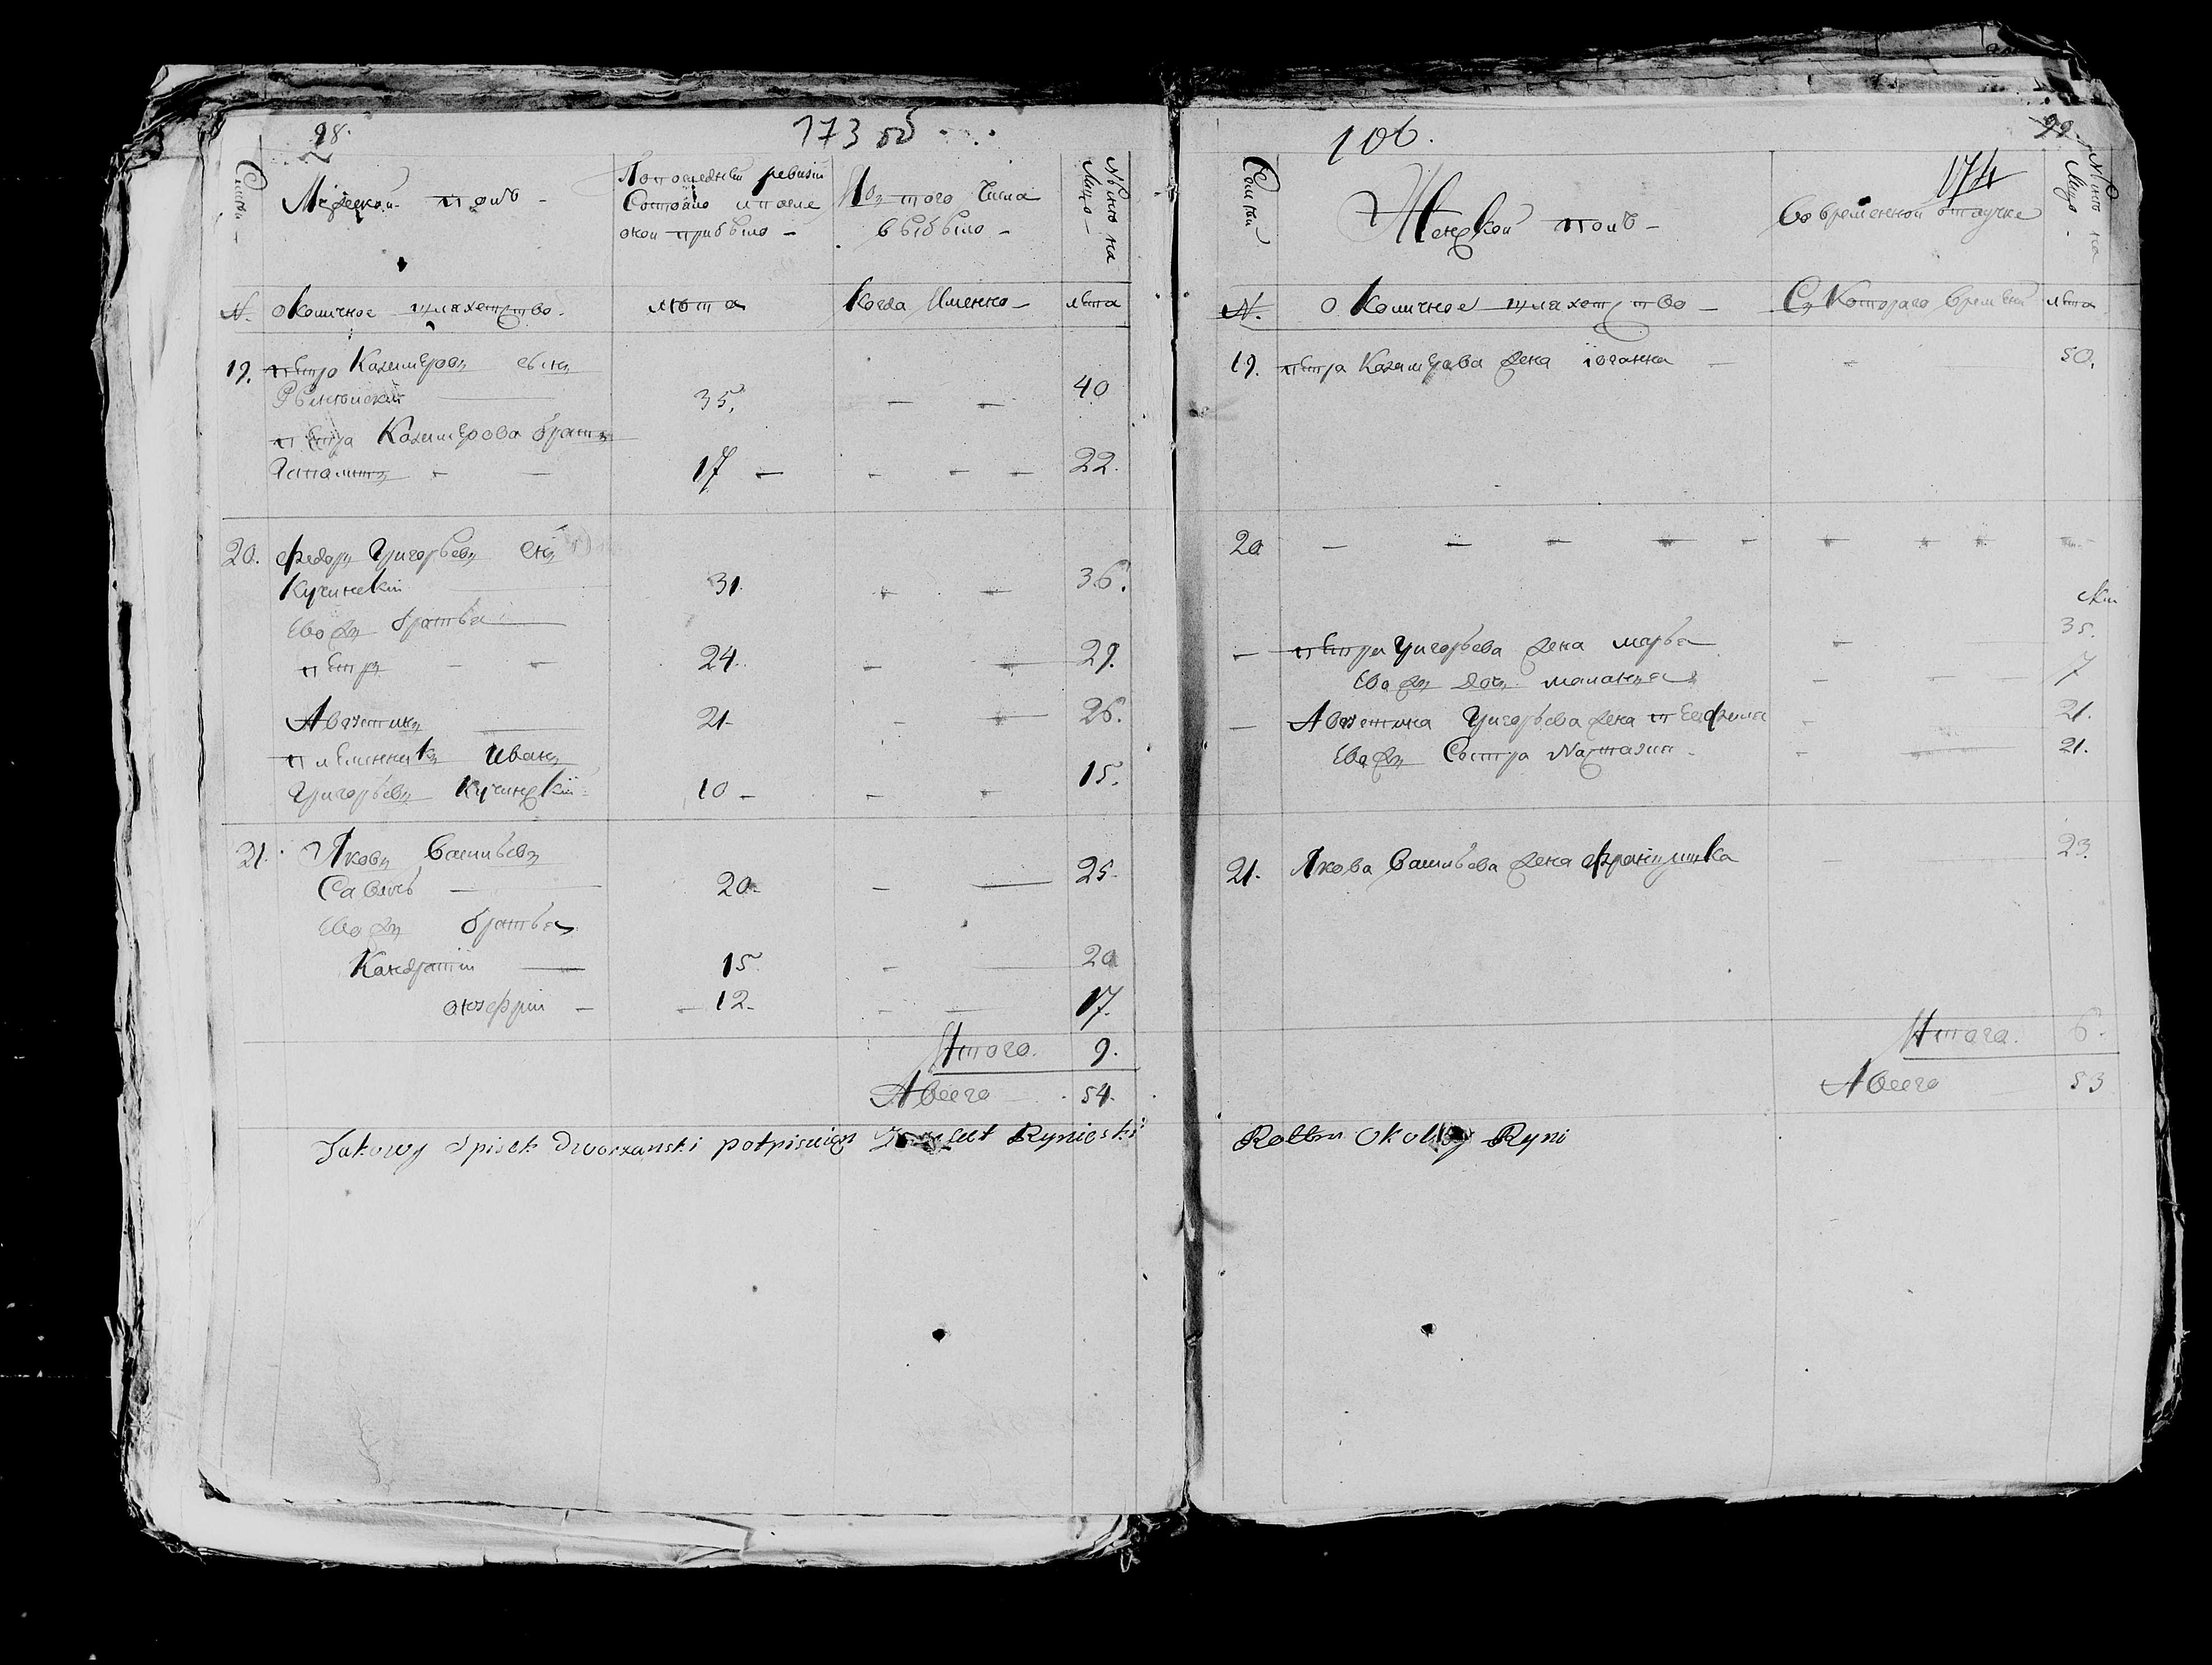 98.
173 об
Семьи
Мужеской полъ
По последней ревизіи
Состояло и после
оной прибыло
Из того числа
выбыло
Ныне на
Лицо
N.
Околичное шляхетство.
лета
Когда Именно
лета
19. Петро Казимеровъ сынъ
35. 40
Петра Казимерова братъ
17 22.
20. Федоръ Григорьевъ снъ
Кучинскій 31. 36.
Ево жъ братья
Петръ 24. 29.
Авгжетинъ 21. 26.
Племенникъ Иванъ
Григорьевъ Кучинскій 10 15.
21. Яковъ Васильевъ
Савичъ 20. 25.
Ево жъ братья
Кандратій 15. 20
онофрій 12. 17.
Итого. 9.
А всего 54.
Takowy Spisek Dworzanski potpisuię Rynieski
106.
99
174
Семьи
Женской полъ
Во временной отлучке
Ныне на
Лицо
N.
Околичное шляхетство
Съ Котораго времени
лета
19. Петра Казимерова жена іоганна 50.
20
35.
Петра Григорьева жена марья
Ево жъ дочь маланья 7
Григорьева жена 21.
Ево жъ Сестра Наталия 21.
21. Якова Васильева жена Францишка 23.
Итого. 6.
А всего 53
Okolicy Ryni